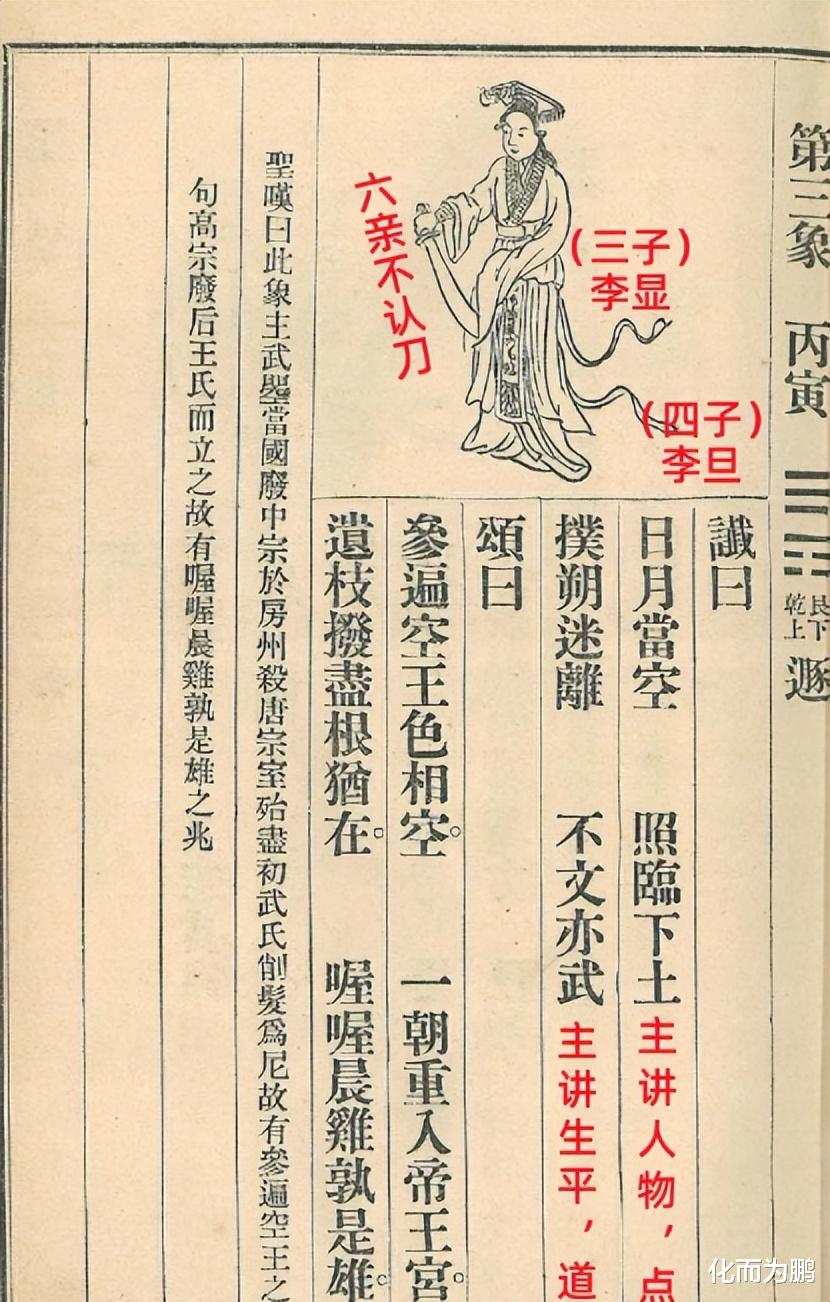 第三象 丙寅
艮下
乾上
遯
讖曰
日月當空 照臨下土
主讲人物，点
撲朔迷離 不文亦武
主讲生平，道
頌曰
參遍空王色相空。 一朝重入帝王宮。
遺枝撥盡根猶在。 喔喔晨雞孰是雄。
六亲不认刀
（三子）
李显
（四子）
李旦
聖嘆曰此象主武曌當國廢中宗於房州殺唐宗室殆盡初武氏削髮爲尼故有參遍空王之
句高宗廢后王氏而立之故有喔喔晨雞孰是雄之兆
化而为鹏